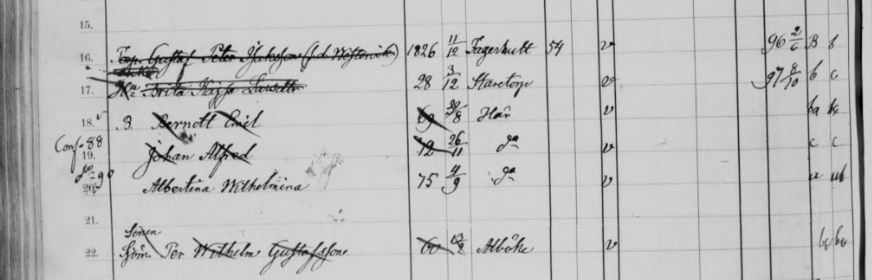 15.
16. Torp. Gustaf Peter Isaksson 1826 11/12 Fagerhult 54 v 96 2/6 B b
17. Ha Brita Kajsa Larsdtr 28 3/12 v 97 8/10 b c
18. B. Bernott Emil 69 30/8 Här v ba
Conf. 88
19. Johan Alfred 72 26/11 da v c c
do 90
20. Albertina Wilhelmina 75 4/9 da v a ab
21.
Sonen
22. Per Wilhelm Gustafsson 60 Alböke v